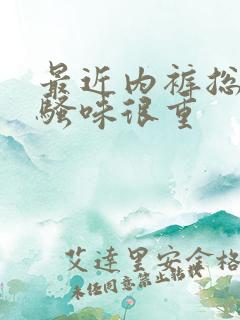 最近内裤总
骚味很重
艾达里安全格
未经同意禁止转载